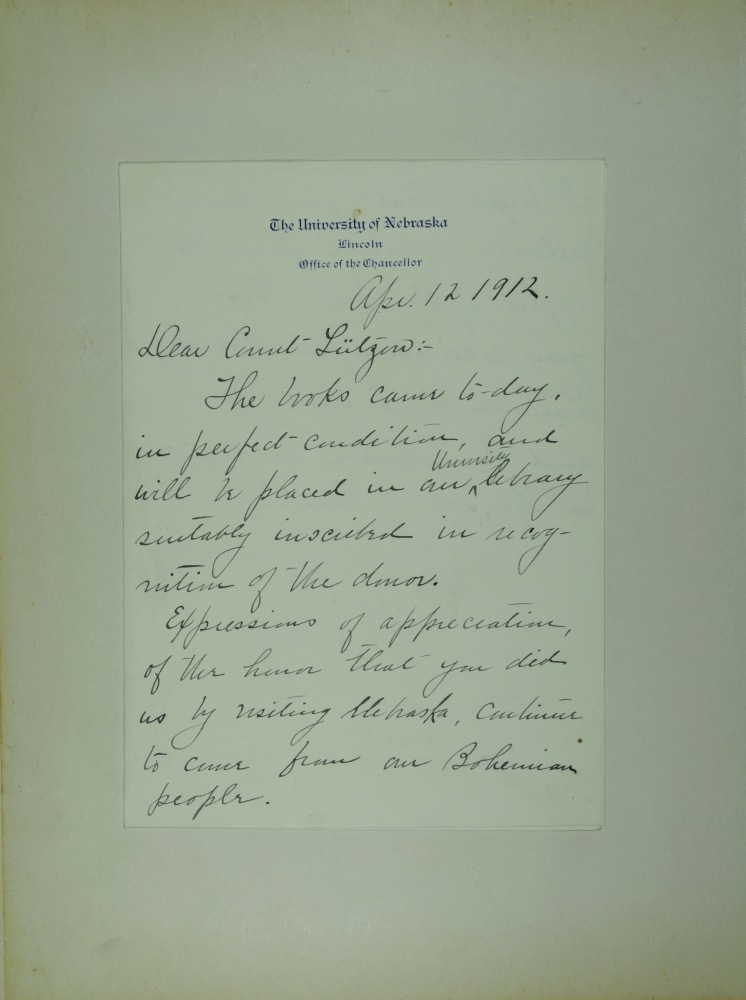 The University of Nebraska
Lincoln
Office of the Chancellor
Apr. 12 1912.
Dear Count Lützow:-
The books came to-day,
in perfect condition, and
will be placed in our University library
suitably inscribed in recog-
nition of the donor.
Expressions of appreciation,
of the honor that you did
us by visiting Nebraska, continue
to come from our Bohemian
people.